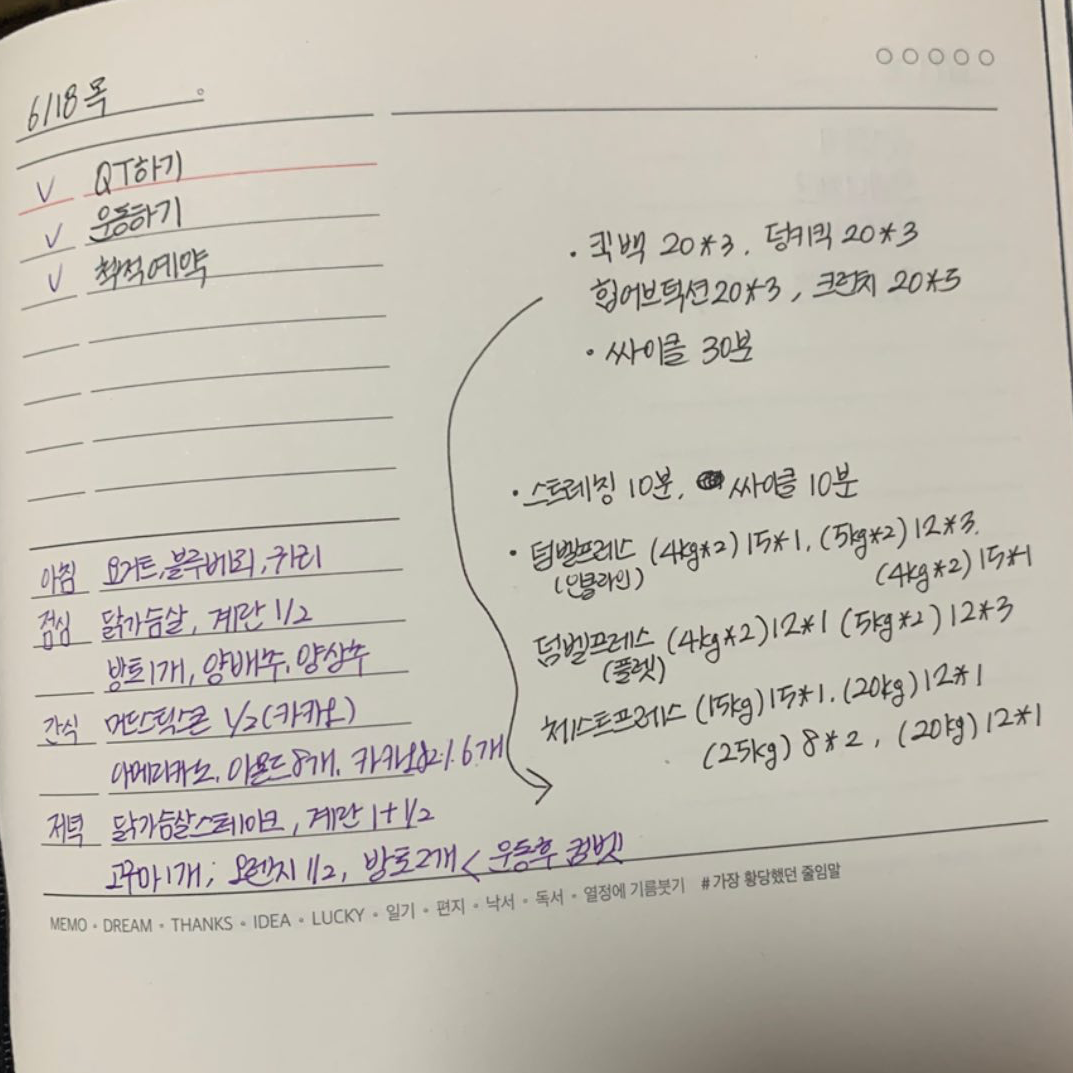 6/18 목
V QT하기
V 운동하기
V 책적예약
• 킥백 20*3, 덩키킥 20*3
힙어브덕션 20*3, 크런치 20*5
• 싸이클 30분
• 스트레칭 10분, 싸이클 10분
• 덤벨프레스 (4kg*2) 15*1, (5kg*2) 12*3,
(인클라인) (4kg*2) 15*1
덤벨프레스 (4kg*2) 12*1 (5kg*2) 12*3
(플랫)
체스트프레스 (15kg) 15*1, (20kg) 12*1
(25kg) 8*2, (20kg) 12*1
아침 요거트, 블루베리, 귀리
점심 닭가슴살, 계란 1/2
방토1개, 양배추, 양상추
간식 1/2 (카카오)
아메리카노, 아몬드 8개, 6개
저녁 닭가슴살스테이크, 계란 1+1/2
꼬꾸마 1개; 오렌지 1/2, 방토2개 < 운동후 컴벳
MEMO • DREAM • THANKS • IDEA • LUCKY • 일기 • 편지 • 낙서 • 독서 • 열정에 기름붓기 #가장 황당했던 줄임말